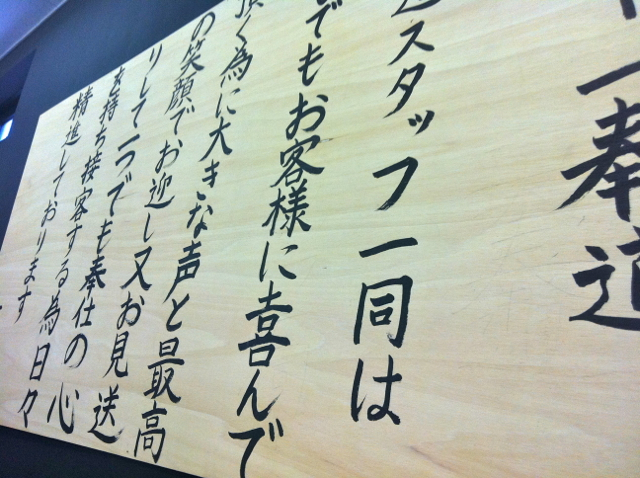 一奉道
スタッフ一同は
でもお客様に喜んで
頂く為に大きな声と最高
の笑顔でお迎し又お見送
りして一つでも奉仕の心
を持ち接客する為日々
精進しております